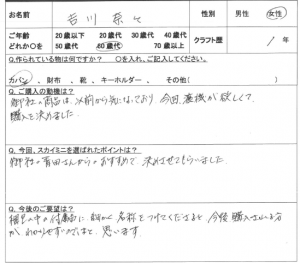 お名前 吉川 奈々 性別 男性 女性
ご年齢 20歳以下 20歳代 30歳代 40歳代 クラフト歴 1年
どれか○を 50歳代 60歳代 70歳以上
Q.作られている物は何ですか? ○を入れ、ご記入してください。
カバン、財布、靴、キーホルダー、その他( )
Q.ご購入の動機は?
御社の商品は、以前から気になっており、今回、産機が欲しくて
購入を決めました。
Q.今回、スカイミニを選ばれたポイントは?
御社の有田さんからのおすすめで、決めさせてもらいました。
Q.今後のご要望は?
名称をつけてくださると、今後購入される方
が、わかりやすいのでは、と思います